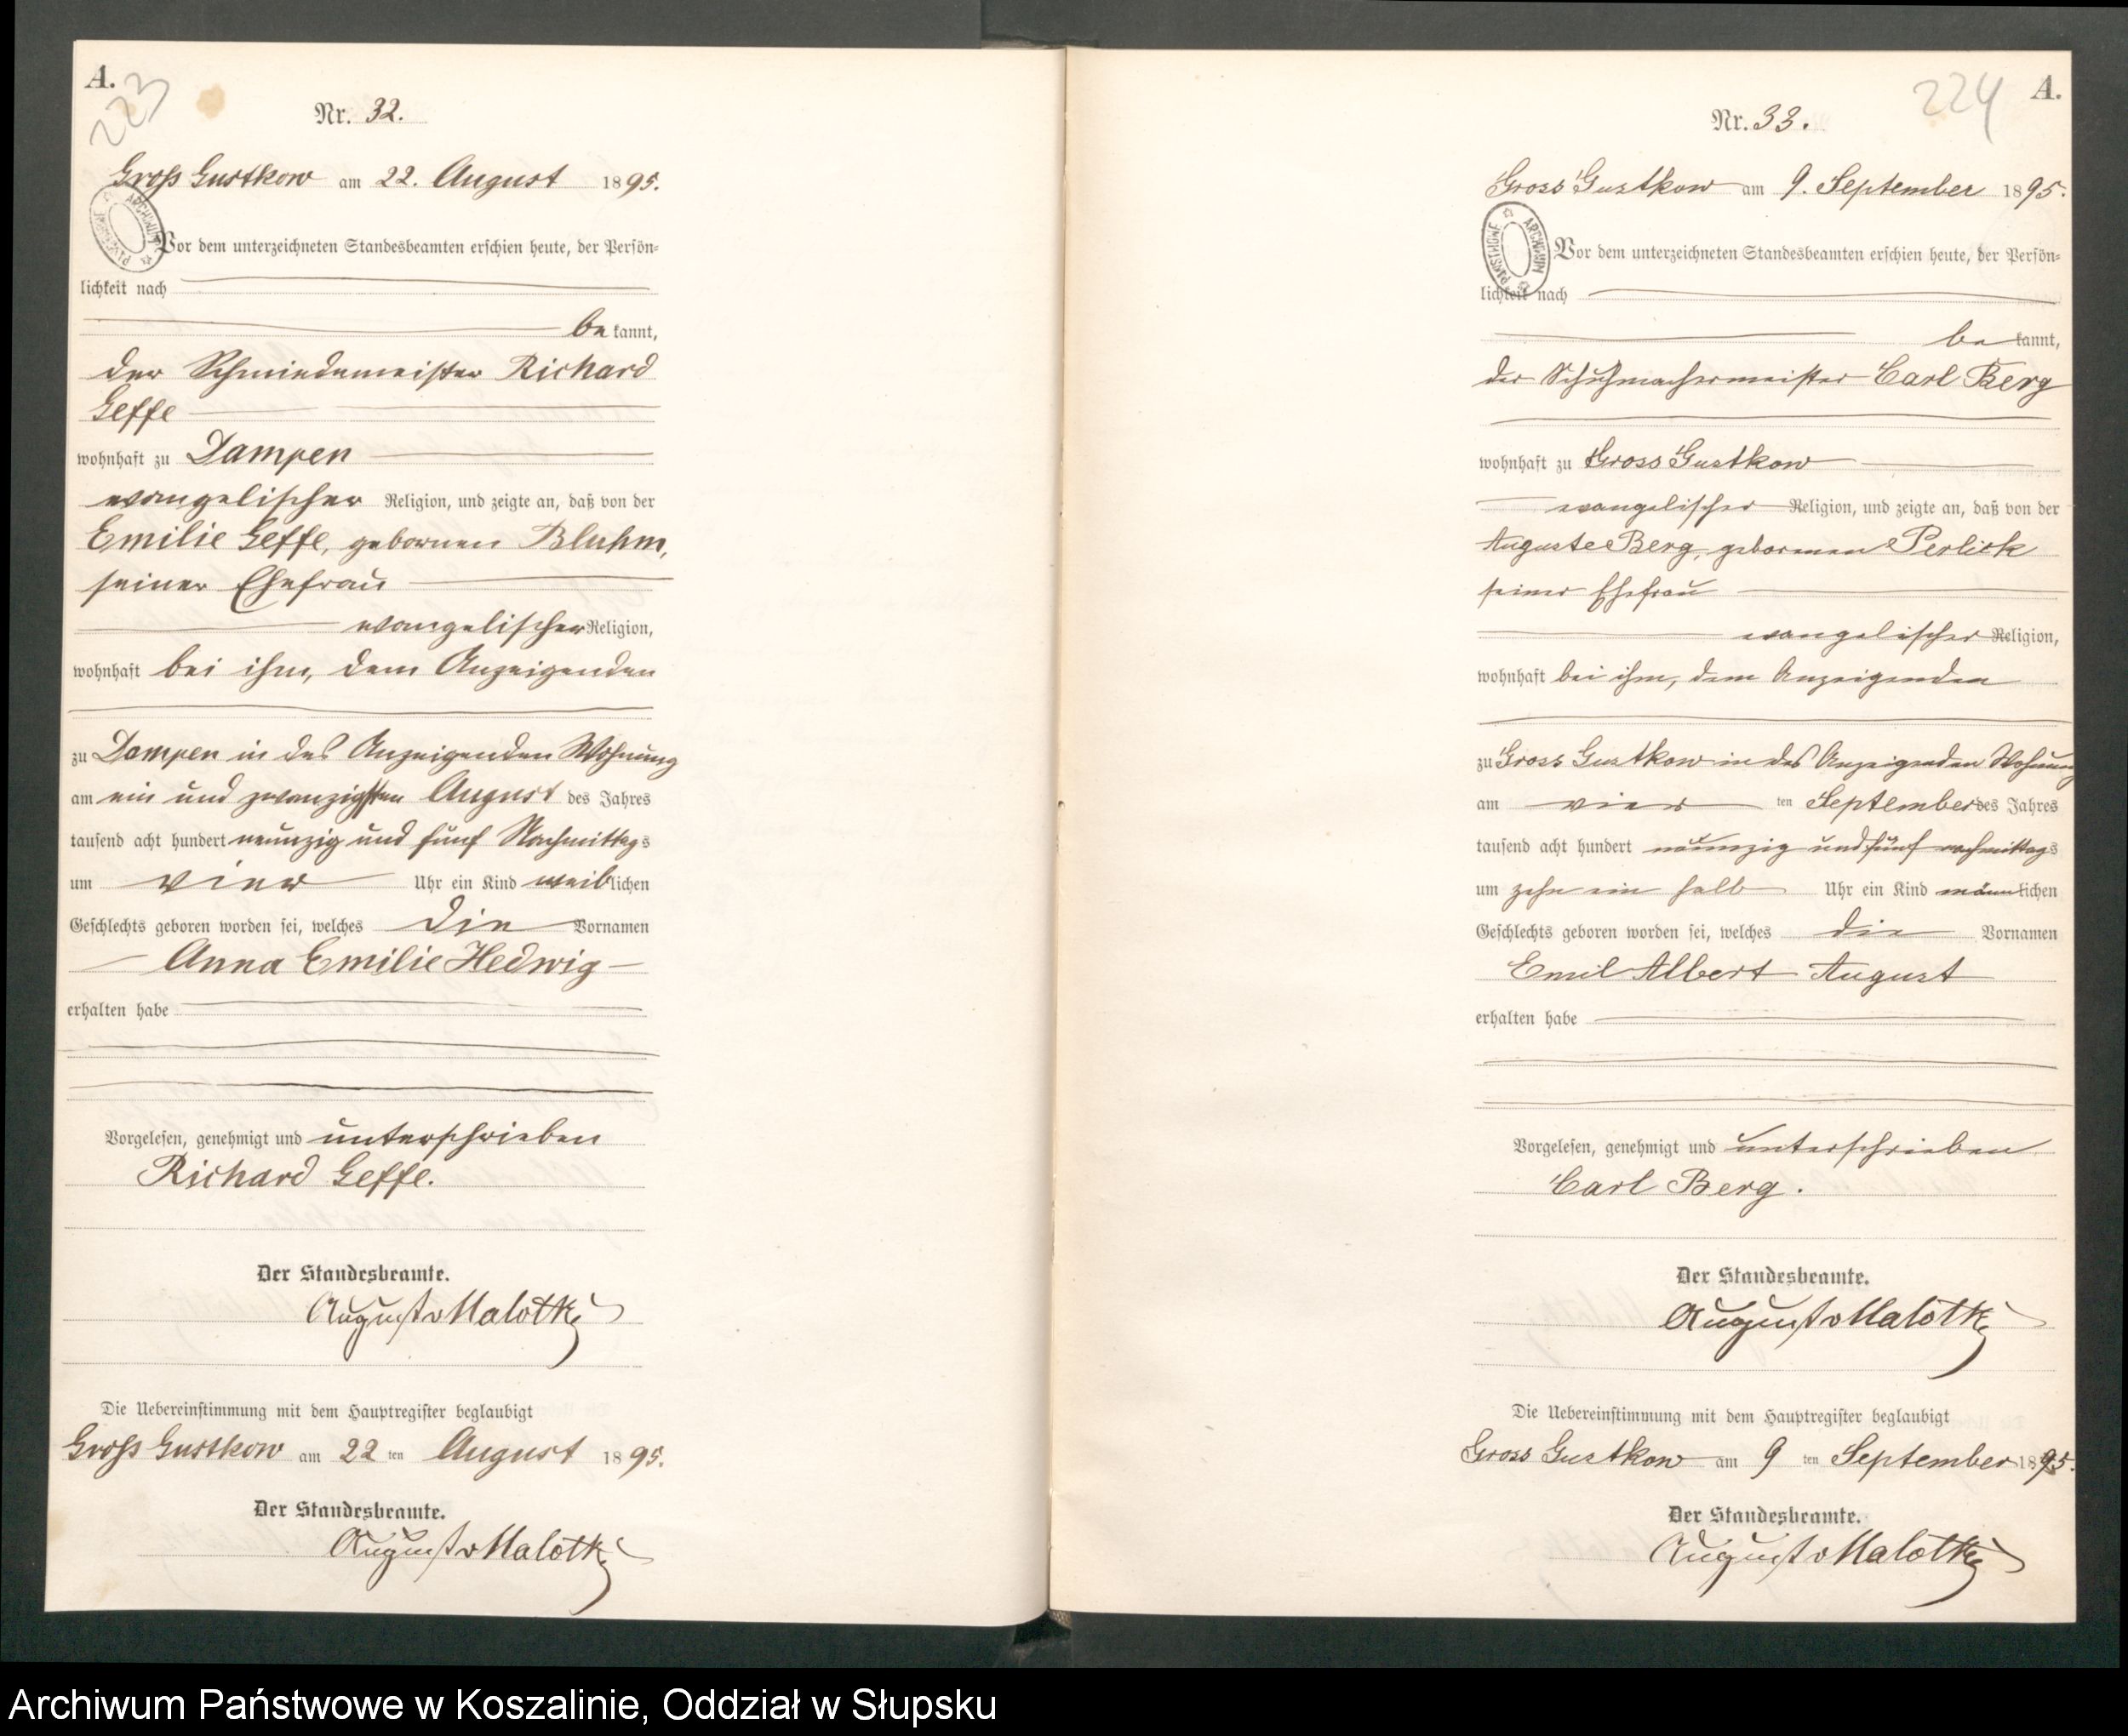 A.
223
Nr. 32.
Groß Gustkow am 22. August 1895.
ARCHIWUM PAŃSTWOWE
Vor dem unterzeichneten Standesbeamten erschien heute, der Persön=
lichkeit nach
be kannt,
der Schmiedemeister Richard
Geffe
wohnhaft zu Dampen
evangelischer Religion, und zeigte an, daß von der
Emilie Geffe, gebornen Bluhm,
seiner Ehefrau
evangelischer Religion,
wohnhaft bei ihm, dem Anzeigenden
zu Dampen in des Anzeigenden Wohnung
am ein und zwanzigsten August des Jahres
tausend acht hundert neunzig und fünf Nachmittags
um vier Uhr ein Kind weiblichen
Geschlechts geboren worden sei, welches die Vornamen
Anna Emilie Hedwig
erhalten habe
Vorgelesen, genehmigt und unterschrieben
Richard Geffe.
Der Standesbeamte.
August v Malotki
Die Uebereinstimmung mit dem Hauptregister beglaubigt
Groß Gustkow am 22 ten August 1895.
Der Standesbeamte.
August v Malotki
224
A.
Nr. 33.
Gross Gustkow am 9. September 1895.
ARCHIWUM PAŃSTWOWE
Vor dem unterzeichneten Standesbeamten erschien heute, der Persön=
lichkeit nach
be kannt,
der Schuhmachermeister Carl Berg
wohnhaft zu Gross Gustkow
evangelischer Religion, und zeigte an, daß von der
Auguste Berg, gebornen Perlick
seiner Ehefrau
evangelischer Religion,
wohnhaft bei ihm, dem Anzeigenden
zu Gross Gustkow in des Anzeigenden Wohnung
am vier ten September des Jahres
tausend acht hundert neunzig und fünf nachmittags
um zehn ein halb Uhr ein Kind männlichen
Geschlechts geboren worden sei, welches die Vornamen
Emil Albert August
erhalten habe
Vorgelesen, genehmigt und unterschrieben
Carl Berg.
Der Standesbeamte.
August v Malotki
Die Uebereinstimmung mit dem Hauptregister beglaubigt
Gross Gustkow am 9 ten September 1895.
Der Standesbeamte.
August v Malotki
Archiwum Państwowe w Koszalinie, Oddział w Słupsku